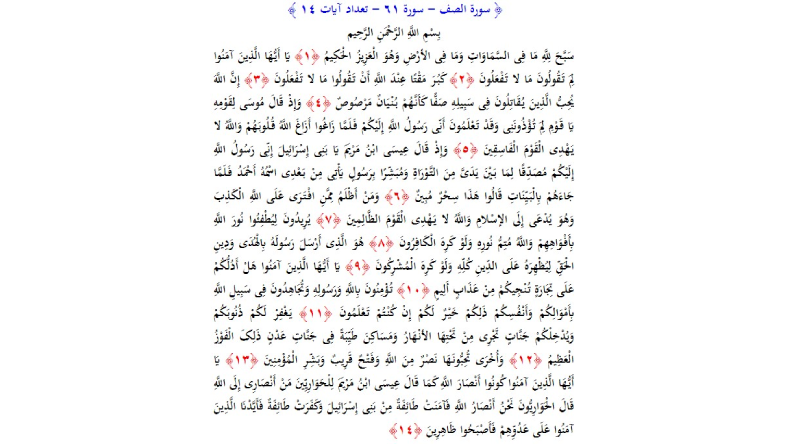 ﴿ سورة الصف – سورة ٦١ – تعداد آیات ١٤ ﴾
بِسْمِ اللَّهِ الرَّحْمَنِ الرَّحِيمِ
سَبَّحَ لِلَّهِ مَا فِی السَّمَاوَاتِ وَمَا فِی الأرْضِ وَهُوَ الْعَزِيزُ الْحَكِيمُ ﴿١﴾ يَا أَيُّهَا الَّذِينَ آمَنُوا
لِمَ تَقُولُونَ مَا لا تَفْعَلُونَ ﴿٢﴾ كَبُرَ مَقْتًا عِنْدَ اللَّهِ أَنْ تَقُولُوا مَا لا تَفْعَلُونَ ﴿٣﴾ إِنَّ اللَّهَ
يُحِبُّ الَّذِينَ يُقَاتِلُونَ فِی سَبِيلِهِ صَفًّا كَأَنَّهُمْ بُنْيَانٌ مَرْصُوصٌ ﴿٤﴾ وَإِذْ قَالَ مُوسَى لِقَوْمِهِ
يَا قَوْمِ لِمَ تُؤْذُونَنِی وَقَدْ تَعْلَمُونَ أَنِّی رَسُولُ اللَّهِ إِلَيْكُمْ فَلَمَّا زَاغُوا أَزَاغَ اللَّهُ قُلُوبَهُمْ وَاللَّهُ لا
يَهْدِی الْقَوْمَ الْفَاسِقِينَ ﴿٥﴾ وَإِذْ قَالَ عِيسَى ابْنُ مَرْيَمَ يَا بَنِی إِسْرَائِيلَ إِنِّی رَسُولُ اللَّهِ
إِلَيْكُمْ مُصَدِّقًا لِمَا بَيْنَ يَدَیَّ مِنَ التَّوْرَاةِ وَمُبَشِّرًا بِرَسُولٍ يَأْتِی مِنْ بَعْدِی اسْمُهُ أَحْمَدُ فَلَمَّا
جَاءَهُمْ بِالْبَيِّنَاتِ قَالُوا هَذَا سِحْرٌ مُبِينٌ ﴿٦﴾ وَمَنْ أَظْلَمُ مِمَّنِ افْتَرَى عَلَى اللَّهِ الْكَذِبَ
وَهُوَ يُدْعَى إِلَى الإسْلامِ وَاللَّهُ لا يَهْدِی الْقَوْمَ الظَّالِمِينَ ﴿٧﴾ يُرِيدُونَ لِيُطْفِئُوا نُورَ اللَّهِ
بِأَفْوَاهِهِمْ وَاللَّهُ مُتِمُّ نُورِهِ وَلَوْ كَرِهَ الْكَافِرُونَ ﴿٨﴾ هُوَ الَّذِی أَرْسَلَ رَسُولَهُ بِالْهُدَى وَدِينِ
الْحَقِّ لِيُظْهِرَهُ عَلَى الدِّينِ كُلِّهِ وَلَوْ كَرِهَ الْمُشْرِكُونَ ﴿٩﴾ يَا أَيُّهَا الَّذِينَ آمَنُوا هَلْ أَدُلُّكُمْ
عَلَى تِجَارَةٍ تُنْجِيكُمْ مِنْ عَذَابٍ أَلِيمٍ ﴿١٠﴾ تُؤْمِنُونَ بِاللَّهِ وَرَسُولِهِ وَتُجَاهِدُونَ فِی سَبِيلِ اللَّهِ
بِأَمْوَالِكُمْ وَأَنْفُسِكُمْ ذَلِكُمْ خَيْرٌ لَكُمْ إِنْ كُنْتُمْ تَعْلَمُونَ ﴿١١﴾ يَغْفِرْ لَكُمْ ذُنُوبَكُمْ
وَيُدْخِلْكُمْ جَنَّاتٍ تَجْرِی مِنْ تَحْتِهَا الأنْهَارُ وَمَسَاكِنَ طَيِّبَةً فِی جَنَّاتِ عَدْنٍ ذَلِكَ الْفَوْزُ
الْعَظِيمُ ﴿١٢﴾ وَأُخْرَى تُحِبُّونَهَا نَصْرٌ مِنَ اللَّهِ وَفَتْحٌ قَرِيبٌ وَبَشِّرِ الْمُؤْمِنِينَ ﴿١٣﴾ يَا
أَيُّهَا الَّذِينَ آمَنُوا كُونُوا أَنْصَارَ اللَّهِ كَمَا قَالَ عِيسَى ابْنُ مَرْيَمَ لِلْحَوَارِيِّينَ مَنْ أَنْصَارِی إِلَى اللَّهِ
قَالَ الْحَوَارِيُّونَ نَحْنُ أَنْصَارُ اللَّهِ فَآمَنَتْ طَائِفَةٌ مِنْ بَنِی إِسْرَائِيلَ وَكَفَرَتْ طَائِفَةٌ فَأَيَّدْنَا الَّذِينَ
آمَنُوا عَلَى عَدُوِّهِمْ فَأَصْبَحُوا ظَاهِرِينَ ﴿١٤﴾